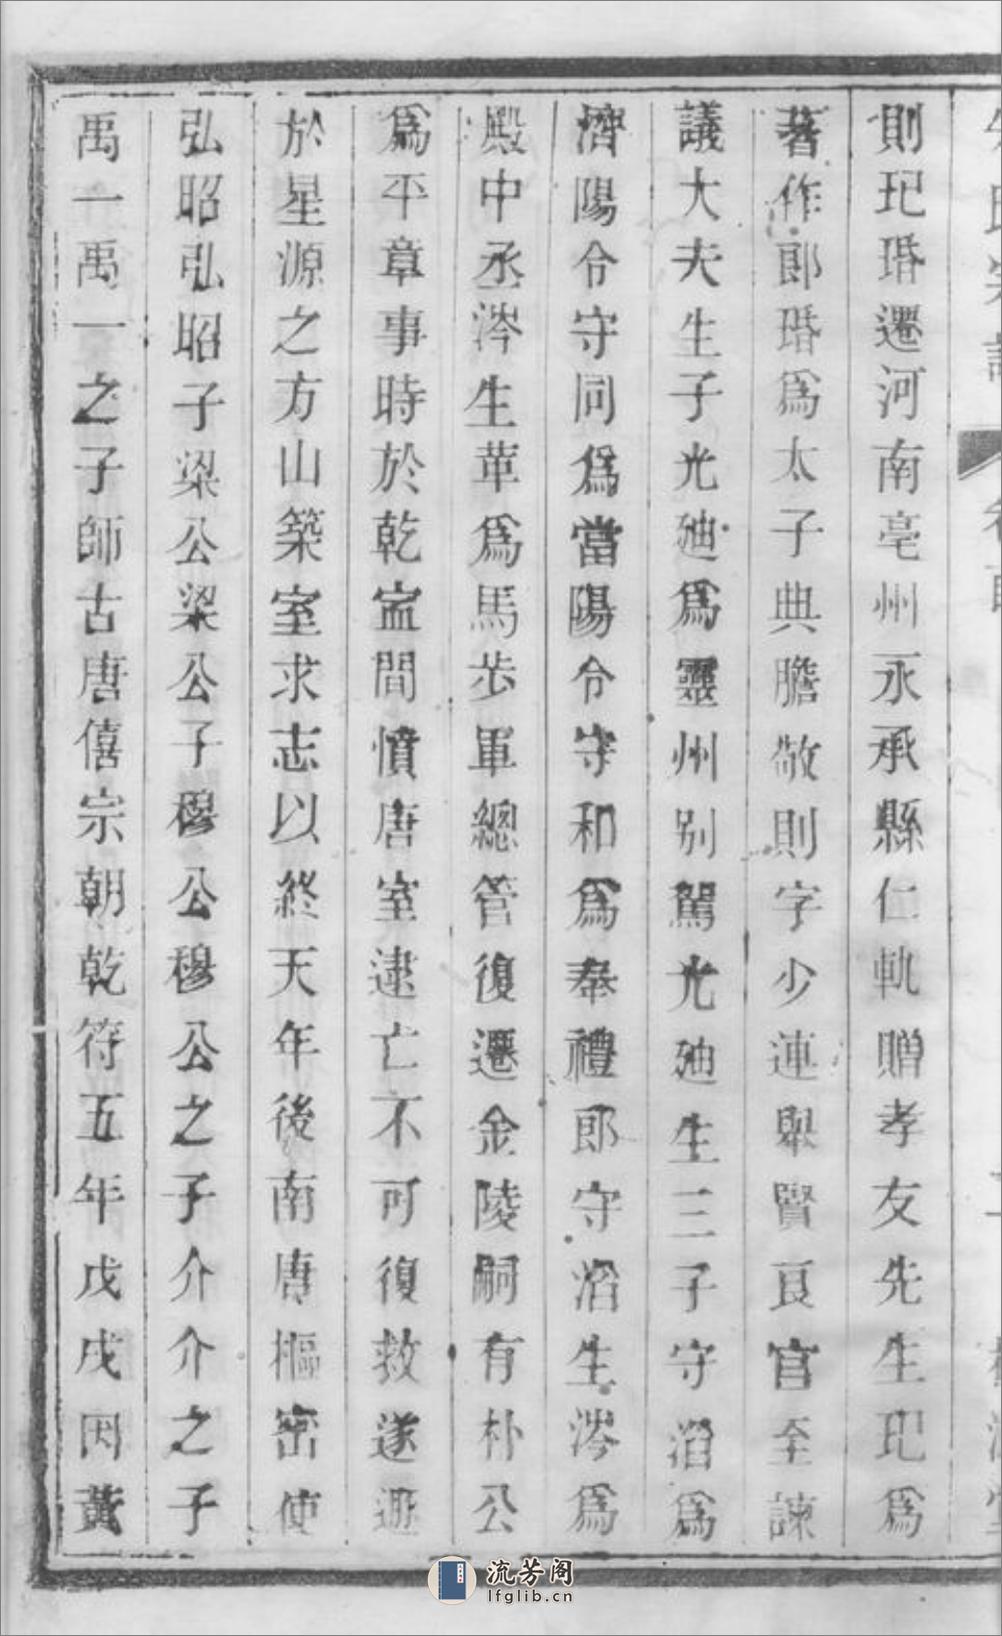 則玘琘遷河南亳州永承縣仁軌贈孝友先生玘爲
著作郎琘爲太子典膳敬則字少連舉賢良官至諫
議大夫生子光廸爲靈州别駕光廸生三子守滔爲
濟陽令守同爲當陽令守和爲奉禮郎守滔生涔爲
殿中丞涔生葦爲馬步軍總管復遷金陵嗣有朴公
爲平章事時於乾寧間憤唐室逮亡不可復救遂遯
於星源之方山築室求志以終天年後南唐樞密使
弘昭弘昭子梁公梁公子穆公穆公之子介介之子
禹一禹一之子師古唐僖宗朝乾符五年戊戌因黃
氏宗譜
流芳阁
lfglib.cn